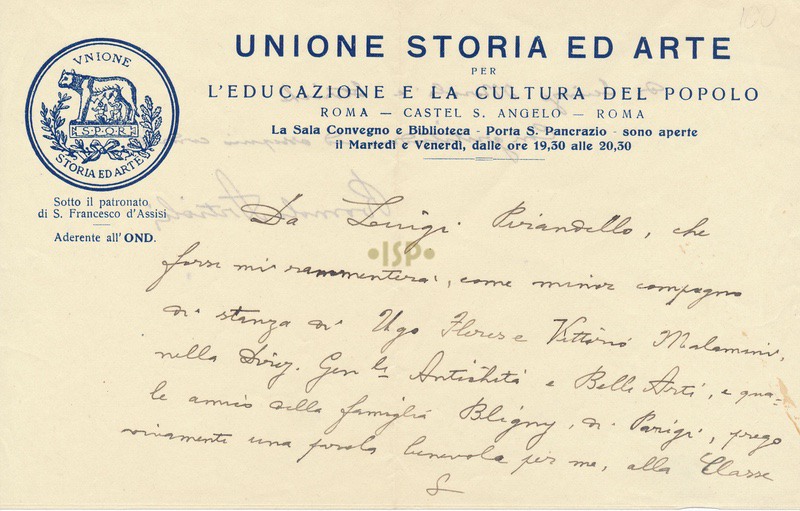 100
UNIONE STORIA ED ARTE
PER
L'EDUCAZIONE E LA CULTURA DEL POPOLO
ROMA — CASTEL S. ANGELO — ROMA
La Sala Convegno e Biblioteca - Porta S. Pancrazio - sono aperte
il Martedì e Venerdì, dalle ore 19,30 alle 20,30
VNIONE
S.P.Q.R.
STORIA ED ARTE
Sotto il patronato
di S. Francesco d'Assisi
Aderente all'OND.
Da Luigi Pirandello, che
•ISP•
forse mi rammenterà, come minor compagno
di stanza di Ugo Fleres e Vittorio Malamani,
nella Direz. Gen.le Antichità e Belle Arti, e qua-
le amico della famiglia Bligny, di Parigi, prego
vivamente una parola benevola per me, alla Classe